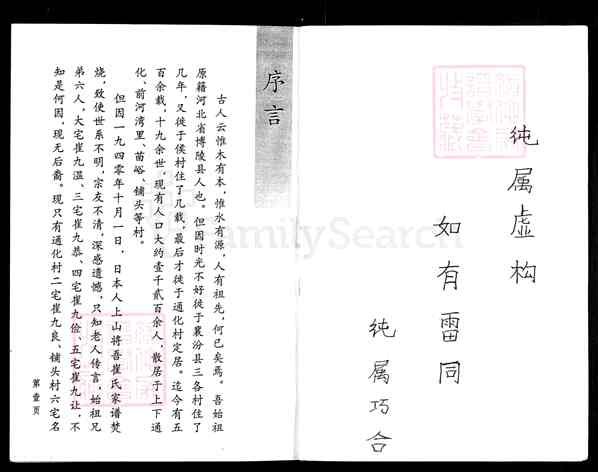 纯属虚构
如有雷同
纯属巧合
序言
古人云惟木有本，惟水有源，人有祖先，何已矣焉。吾始祖
原籍河北省博陵县人也。但因时光不好徙于襄汾县三各村住了
几年，又徙于侯村住了几载，最后才徙于通化村定居。迄今有五
百余载，十九余世，现有人口大约壹千贰百余人，散居于上下通
化、前河湾里、苗峪、铺头等村。
但因一九四零年十月一日，日本人上山将吾崔氏家谱焚
烧，致使世系不明，宗友不清，深感遗憾，只知老人传言，始祖兄
弟六人，大宅崔九温、三宅崔九恭、四宅崔九俭、五宅崔九让，不
知是何因，现无后裔。现只有通化村二宅崔九良、铺头村六宅名
第壹页
FamilySearch